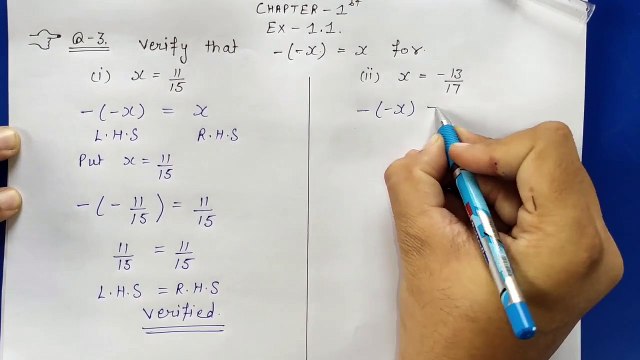 CHAPTER - 1st
EX - 1.1.
Q-3. Verify that -(-x) = x for
(i) x = 11/15
-(-x) = x
L.H.S R.H.S
Put x = 11/15
-(-11/15) = 11/15
11/15 = 11/15
L.H.S = R.H.S
Verified.
(ii) x = -13/17
-(-x) -